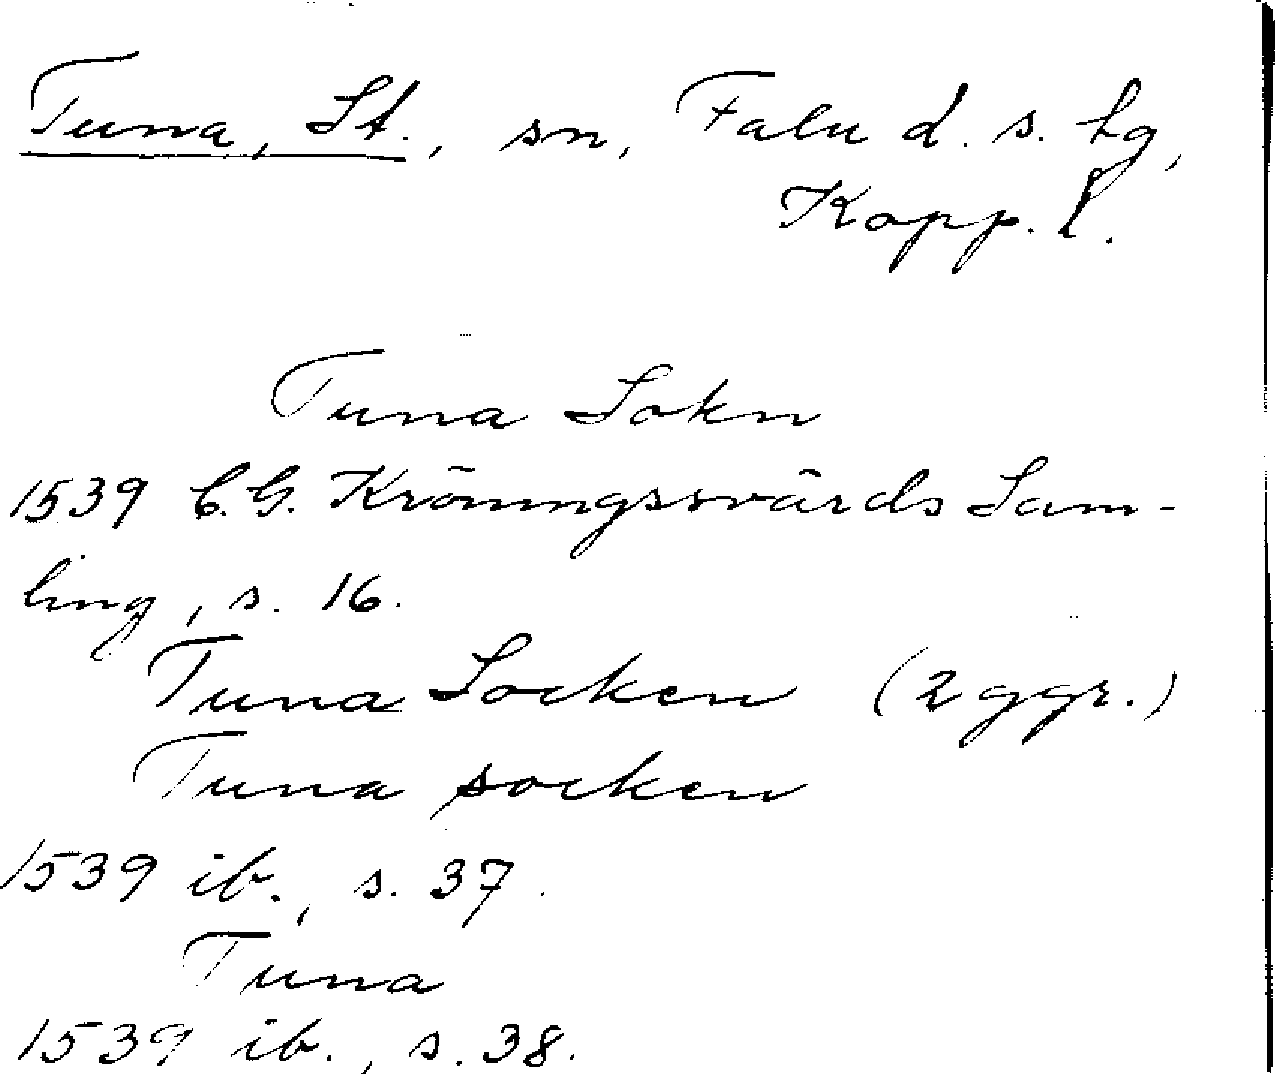 Tuna, St., sn, Falu d. s. hg,
Kopp. l.
Tuna Sokn
1539 C.G. Kröningssvärds Sam-
ling, s. 16.
Tuna Socken (2 ggr.)
Tuna socken
1539 ib., s. 37.
Tuna
1539 ib., s. 38.